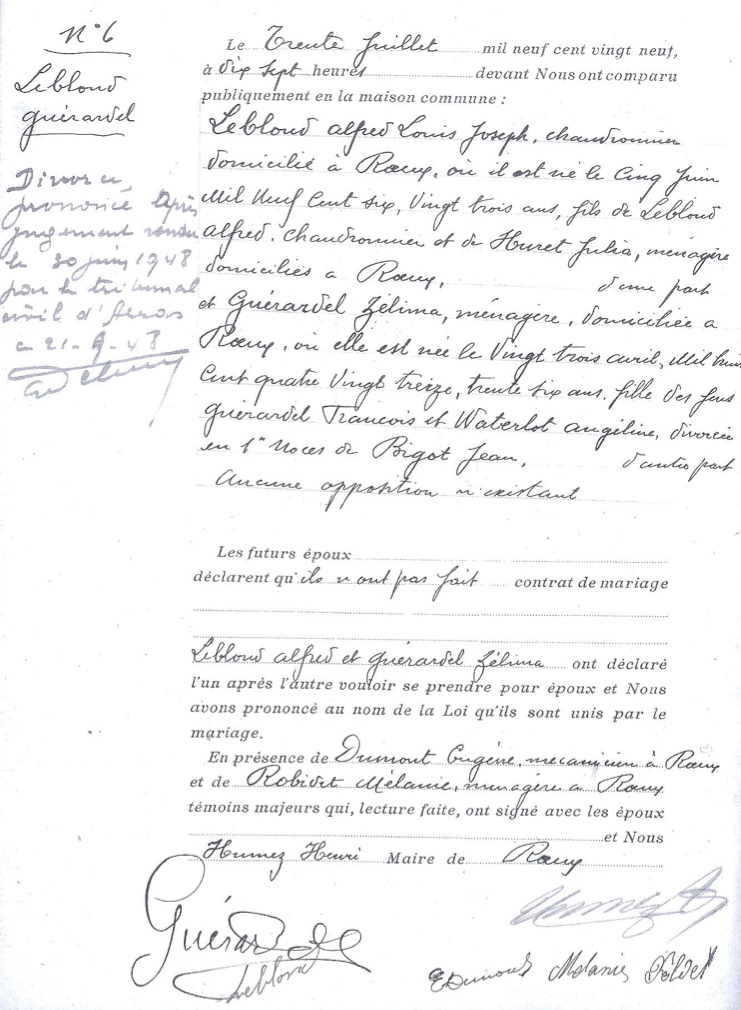 N° 6
Leblond
Guérardel
Divorce
prononcé après
jugement rendu
le 30 juin 1948
par le tribunal
civil d'Arras
Le Trente Juillet mil neuf cent vingt neuf,
à dix sept heures devant Nous ont comparu
publiquement en la maison commune :
Leblond alfred Louis Joseph, chaudronnier
domicilié à Rœux, où il est né le Cinq Juin
Mil Neuf Cent six, Vingt trois ans, fils de Leblond
alfred. Chaudronnier et de Huret Julia, ménagère
domiciliés a Rœux, d'une part
et Guérardel Zélima, ménagère, domiciliée a
Rœux, où elle est née le Vingt trois avril, Mil huit
Cent quatre Vingt treize, trente six ans. fille des feus
Guérardel Francois et Waterlot angéline, divorcée
en 1e Noces de Bigot Jean, d'autre part
Aucune opposition n'existant
Les futurs époux
déclarent qu'ils n'ont pas fait contrat de mariage
Leblond alfred et Guérardel Zélima ont déclaré
l'un après l'autre vouloir se prendre pour époux et Nous
avons prononcé au nom de la Loi qu'ils sont unis par le
mariage.
En présence de Dumont Eugène, mécanicien à Rœux
et de Robidet Mélanie, ménagère a Rœux
témoins majeurs qui, lecture faite, ont signé avec les époux
et Nous
Humez Henri Maire de Rœux
Guérardel
Leblond
E Dumont Mélanie